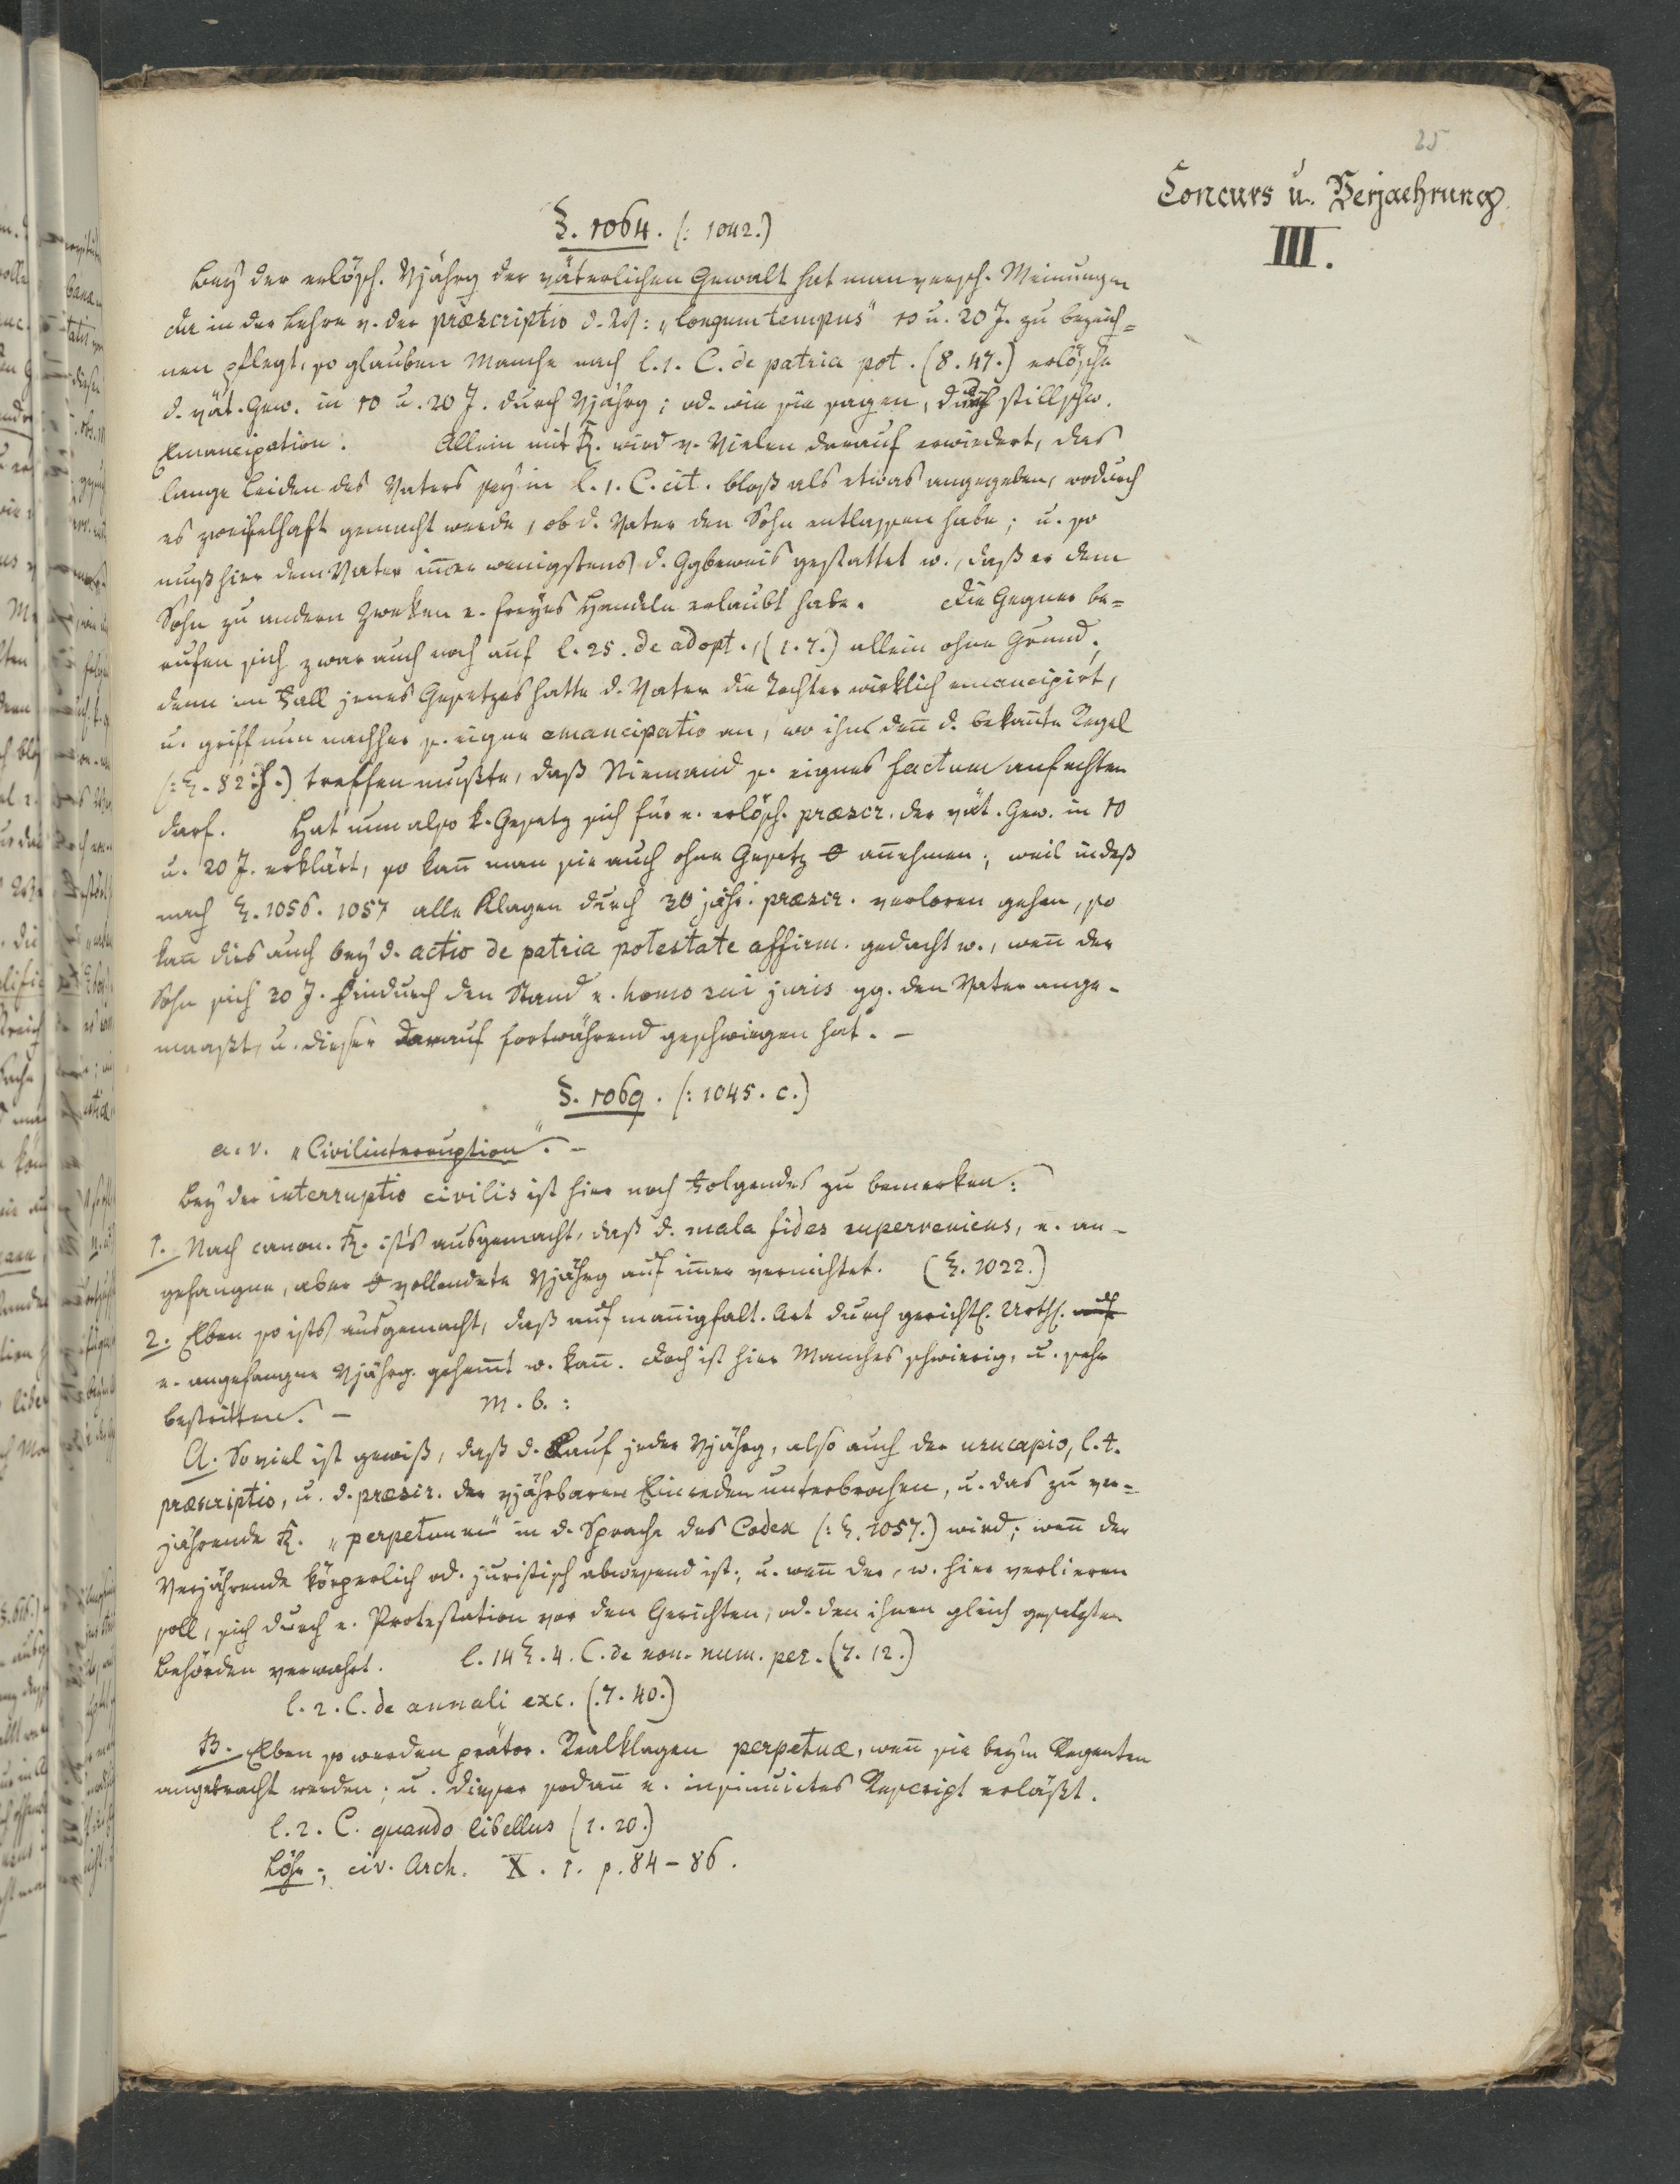 25
Concurs u. Verjaehrung
III.
§. 1064. (: 1042.)
Bey der erlösch. Vjährg der väterlichen Gewalt hat man versch. Meinungen
da in der Lehre v. der præscriptio d. W: „longum tempus" 10 u. 20 J. zu bezeich=
nen pflegt, so glauben Manche nach l. 1. C. de patria pot. (8. 47.) erlösche
d. vät. Gew. in 10 u. 20 J. durch Vjährg; od. wie sie sagen, durch stillschw.
Emancipation. Allein mit R. wird v. Vielen darauf erwiedert, das
lange Leiden des Vaters sey in l. 1. C. cit. bloß als etwas angegeben, wodurch
es zweifelhaft gemacht werde, ob d. Vater den Sohn entlassen habe; u. so
muß hier dem Vater im̅er wenigstens d. Ggbeweis gestattet w., daß er dem
Sohn zu andern Zweken e. freyes Handeln erlaubt habe. Die Gegner be=
rufen sich zwar auch noch auf l. 25. de adopt., (1. 7.) allein ohne Grund;
denn im Fall jenes Gesetzes hatte d. Vater die Tochter wirklich emancipirt,
u. griff nun nachher s. eigne emancipatio an, wo ihn den̅ d. bekan̅te Regel
(: §. 82 .) treffen mußte, daß Niemand s. eignes factum anfechten
darf. Hat nun also k. Gesetz sich für e. erlösch. præscr. der vät. Gew. in 10
u. 20 J. erklärt, so kan̅ man sie auch ohne Gesetz an̅ehmen; weil indeß
nach §. 1056. 1057 alle Klagen durch 30 jähr. præscr. verloren gehen, so
kan̅ dies auch bey d. actio de patria potestate affirm. gedacht w., wen̅ der
Sohn sich 30 J. hindurch den Stand e. homo sui juris gg. den Vater ange-
maaßt, u. dieser darauf fortwährend geschwiegen hat. -
§. 1069. (: 1045. c.)
a. v. „Civilinterruption". -
Bey der interruptio civilis ist hier noch Folgendes zu bemerken:
1. Nach canon. R. ist's ausgemacht, daß d. mala fides superveniens, e. an-
gefangne, aber vollendete Vjährg auf im̅er vernichtet. (§. 1022.)
2. Eben so ists ausgemacht, daß auf man̅igfalt. Art durch gerichtl. Urthl. auf
e. angefangne Vjährg. gehem̅t w. kan̅. Doch ist hier Manches schwierig, u. sehr
bestritten. - M. b.:
A. Soviel ist gewiß, daß d. Lauf jeder Vjährg, also auch der usucapio, l. t.
præscriptio, u. d. præscr. der vjährbaren Einreden unterbrochen, u. das zu ver=
jährende R. „perpetuum" in d. Sprache des Codex (: §. 1057.) wird; wen̅ der
Verjährende körperlich od. juristisch abwesend ist; u. wen̅ der, w. hier verlieren
soll, sich durch e. Protestation vor den Gerichten, od. den ihnen gleich gesetzten
Behörden verwahrt. l. 14 §. 4. C. de non. num. pec. (7. 12.)
l. 2. C. de annali exc. (.7. 40.)
B. Eben so werden prätor. Realklagen perpetuæ, wen̅ sie bey'm Regenten
angebracht werden; u. dieser sodan̅ e. insinuirtes Rescript erläßt.
l. 2. C. quando libellus (1. 20.)
Löhr; civ. Arch. X. 1. p. 84-86.